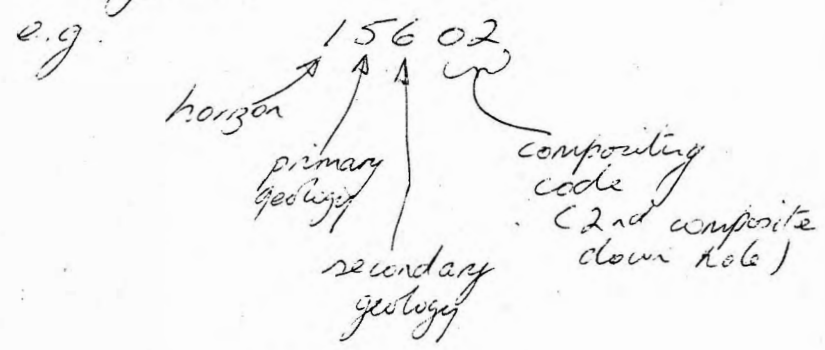 e.g. 15602
horizon
primary
geology
secondary
geology
compositing
code
(2nd composite
down hole)